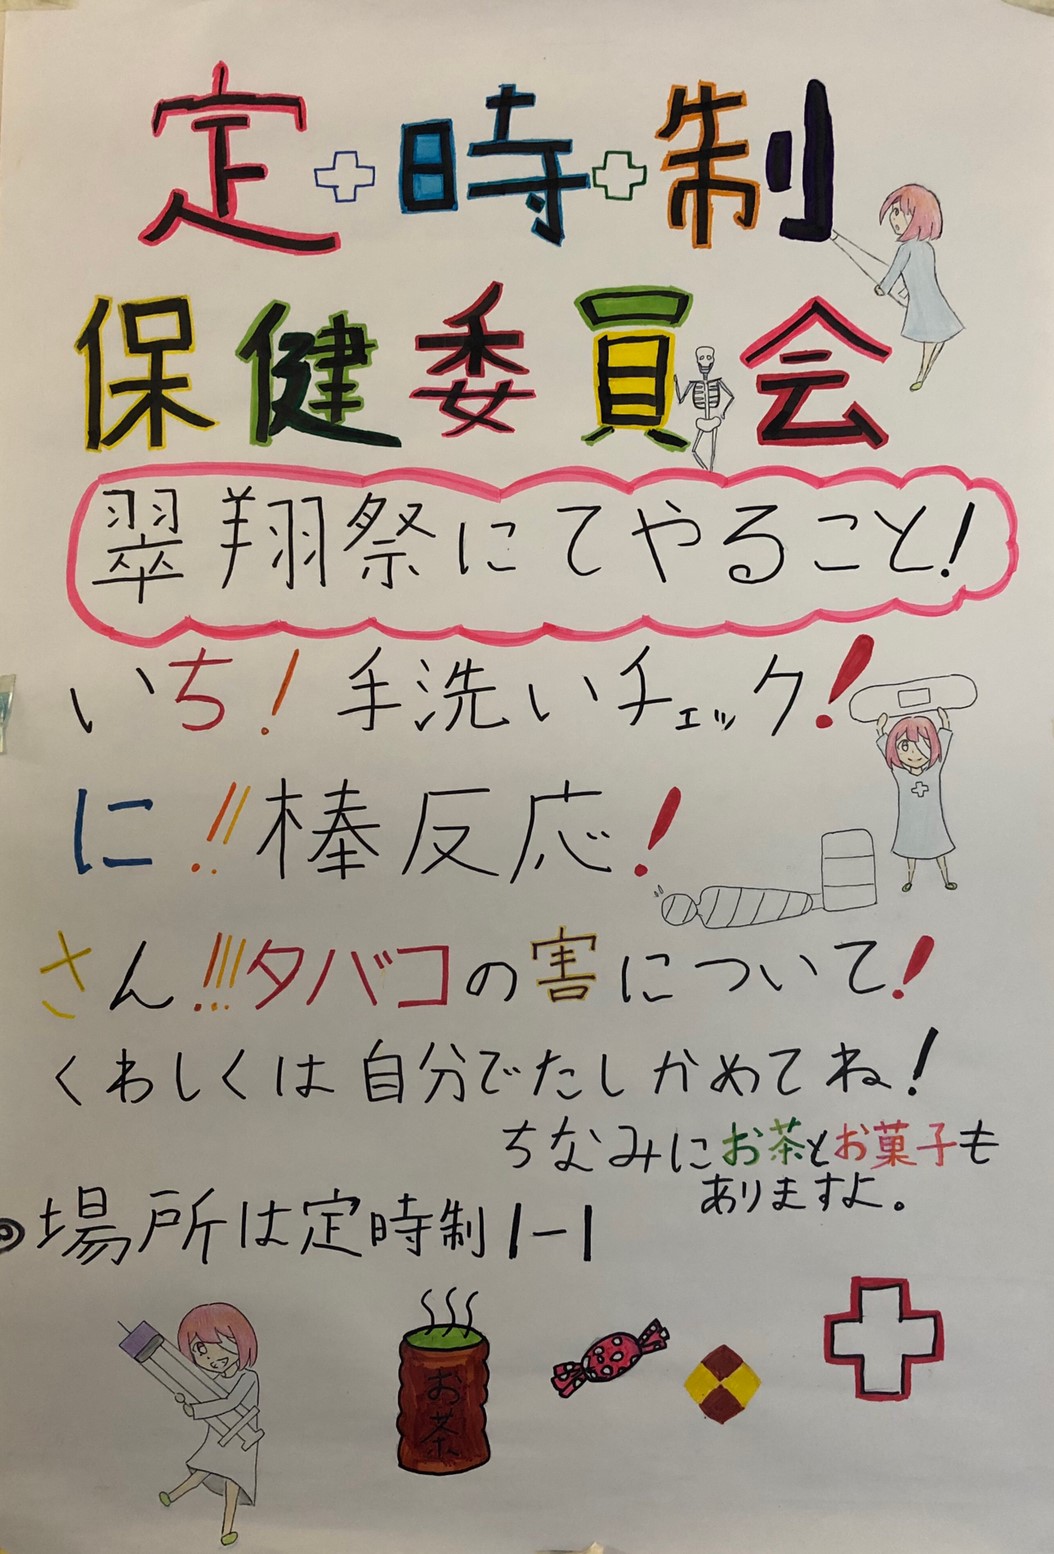 定時制
保健委員会
翠翔祭にてやること!
いち! 手洗いチェック!
に!! 棒反応!
さん!!! タバコの害について!
くわしくは自分でたしかめてね!
ちなみにお茶とお菓子も
ありますよ。
◎場所は定時制1-1
お茶